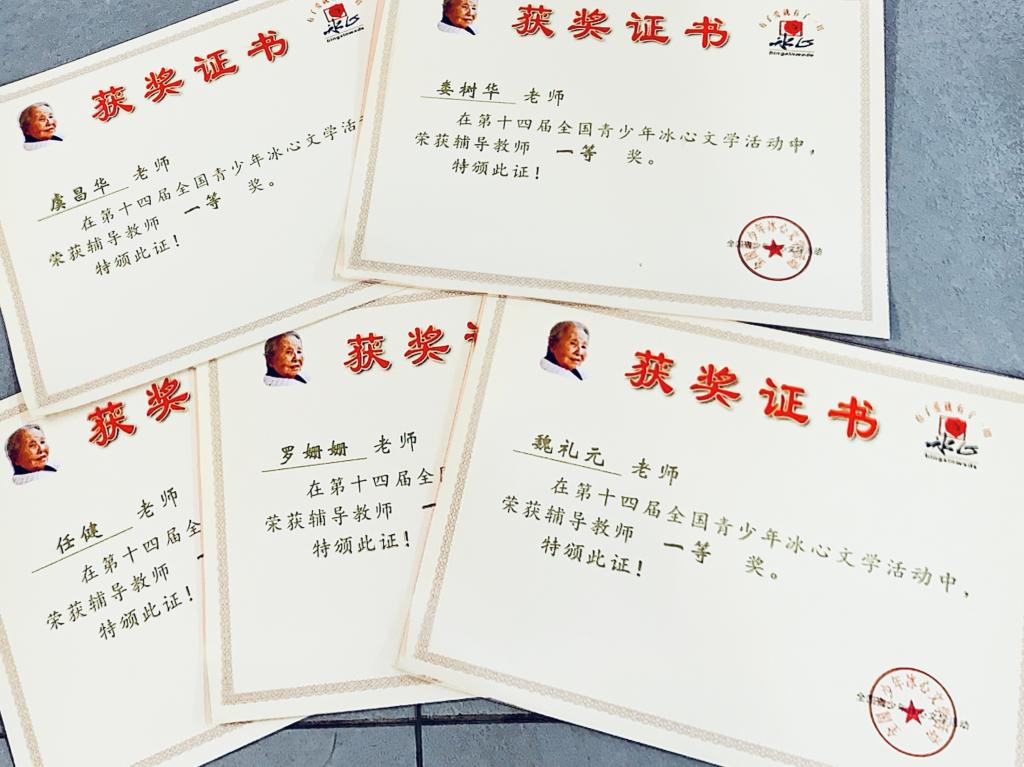 获奖证书
虞昌华 老师
在第十四届全国青少年冰心文学活
荣获辅导教师 一等 奖。
特颁此证!
获奖证书
bingxinwade
娄树华 老师
在第十四届全国青少年冰心文学活动中,
荣获辅导教师 一等 奖。
特颁此证!
获奖
任健 老师
在第十四届全
荣获辅导教师 一
特颁此证!
获奖
罗姗姗 老师
在第十四届全
荣获辅导教师 一
特颁此证!
获奖证书
冰心
bingxinwade
魏礼元 老师
在第十四届全国青少年冰心文学活动中,
荣获辅导教师 一等 奖。
特颁此证!